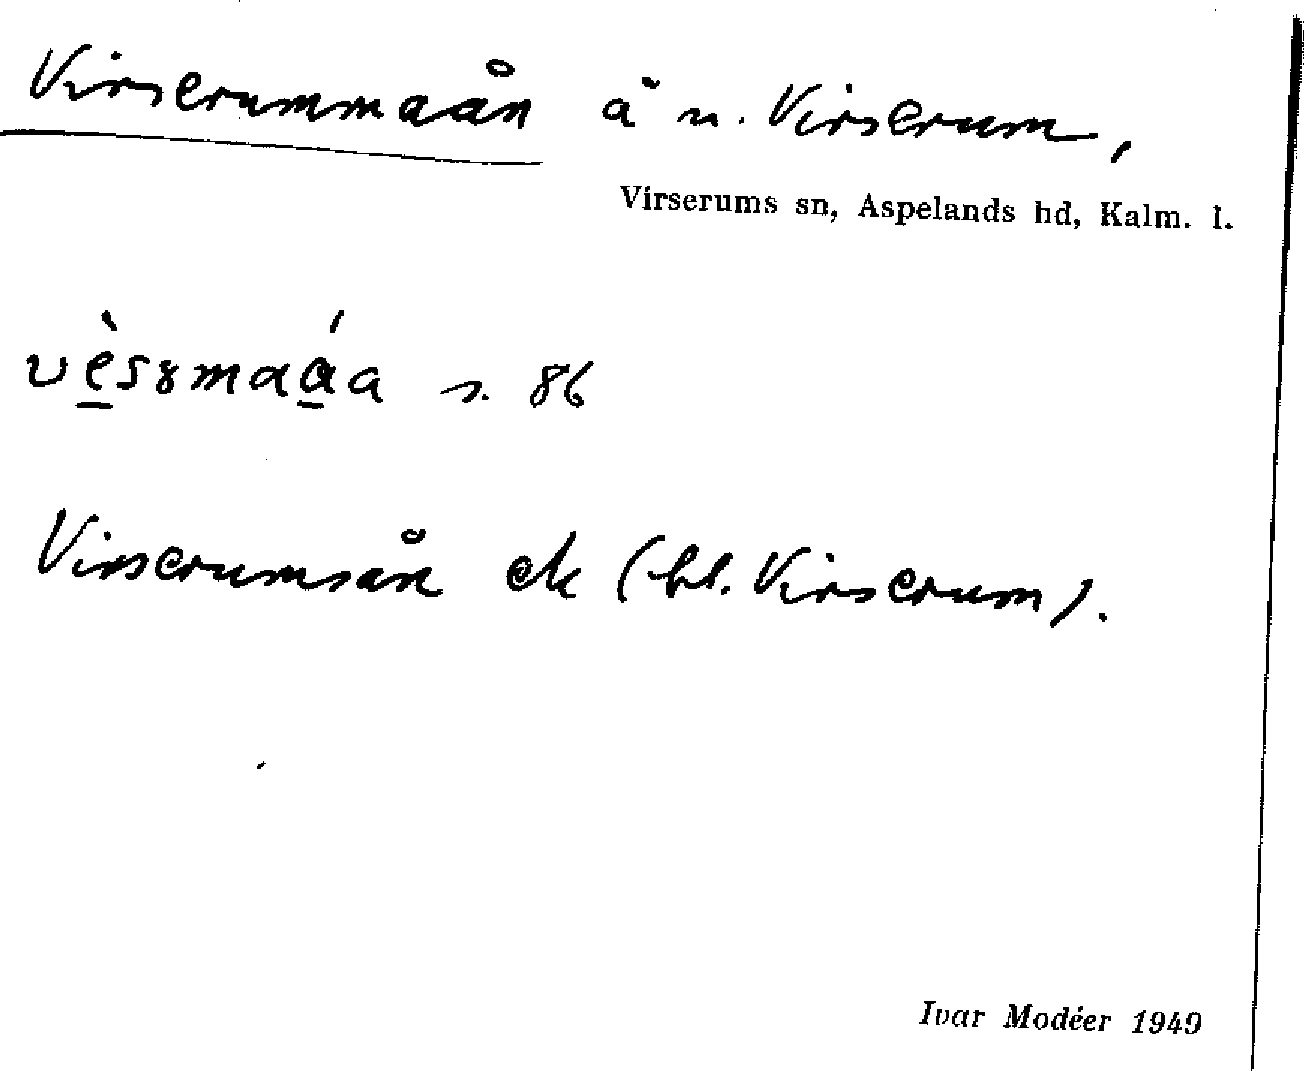 Virserummaån å n. Virserum,
Virserums sn, Aspelands hd, Kalm. l.
s. 86
Virserumsån ek (bl. Virserum).
Ivar Modéer 1949